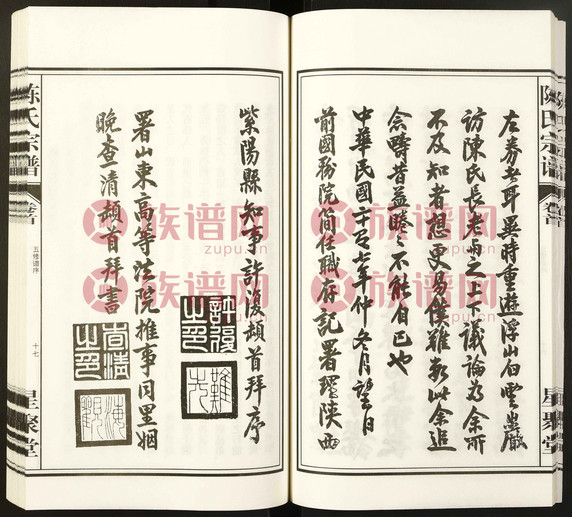 左券者耳異時重遊浮山白雲巖
訪陳氏長老與之上議論為余所
不及知者想更易僕難數此余追
念疇昔益睠之不能自已也
中華民國二十七年仲冬月望日
前國務院簡任職存記署理陝西
紫陽縣知事許復頓首拜序
許復之印
署山東高等法院推事同里姻
晚查清頓首拜書
查清之印
陈氏宗谱
卷首
五修谱序
十七
星聚堂
陈氏宗谱
卷首
星聚堂
族谱网
zupu.cn